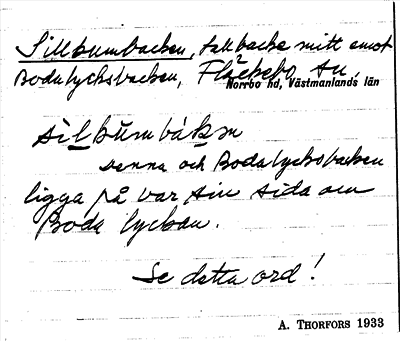 Sillbumbacken, tallbacke mitt emot
Bodalycksbacken, Fläckebo sn,
Norrbo hd, Västmanlands län
sìlbùmbákɐn
Denna och Bodalycksbacken
ligga på var sin sida om
Boda lyckan.
Se detta ord!
A. THORFORS 1933